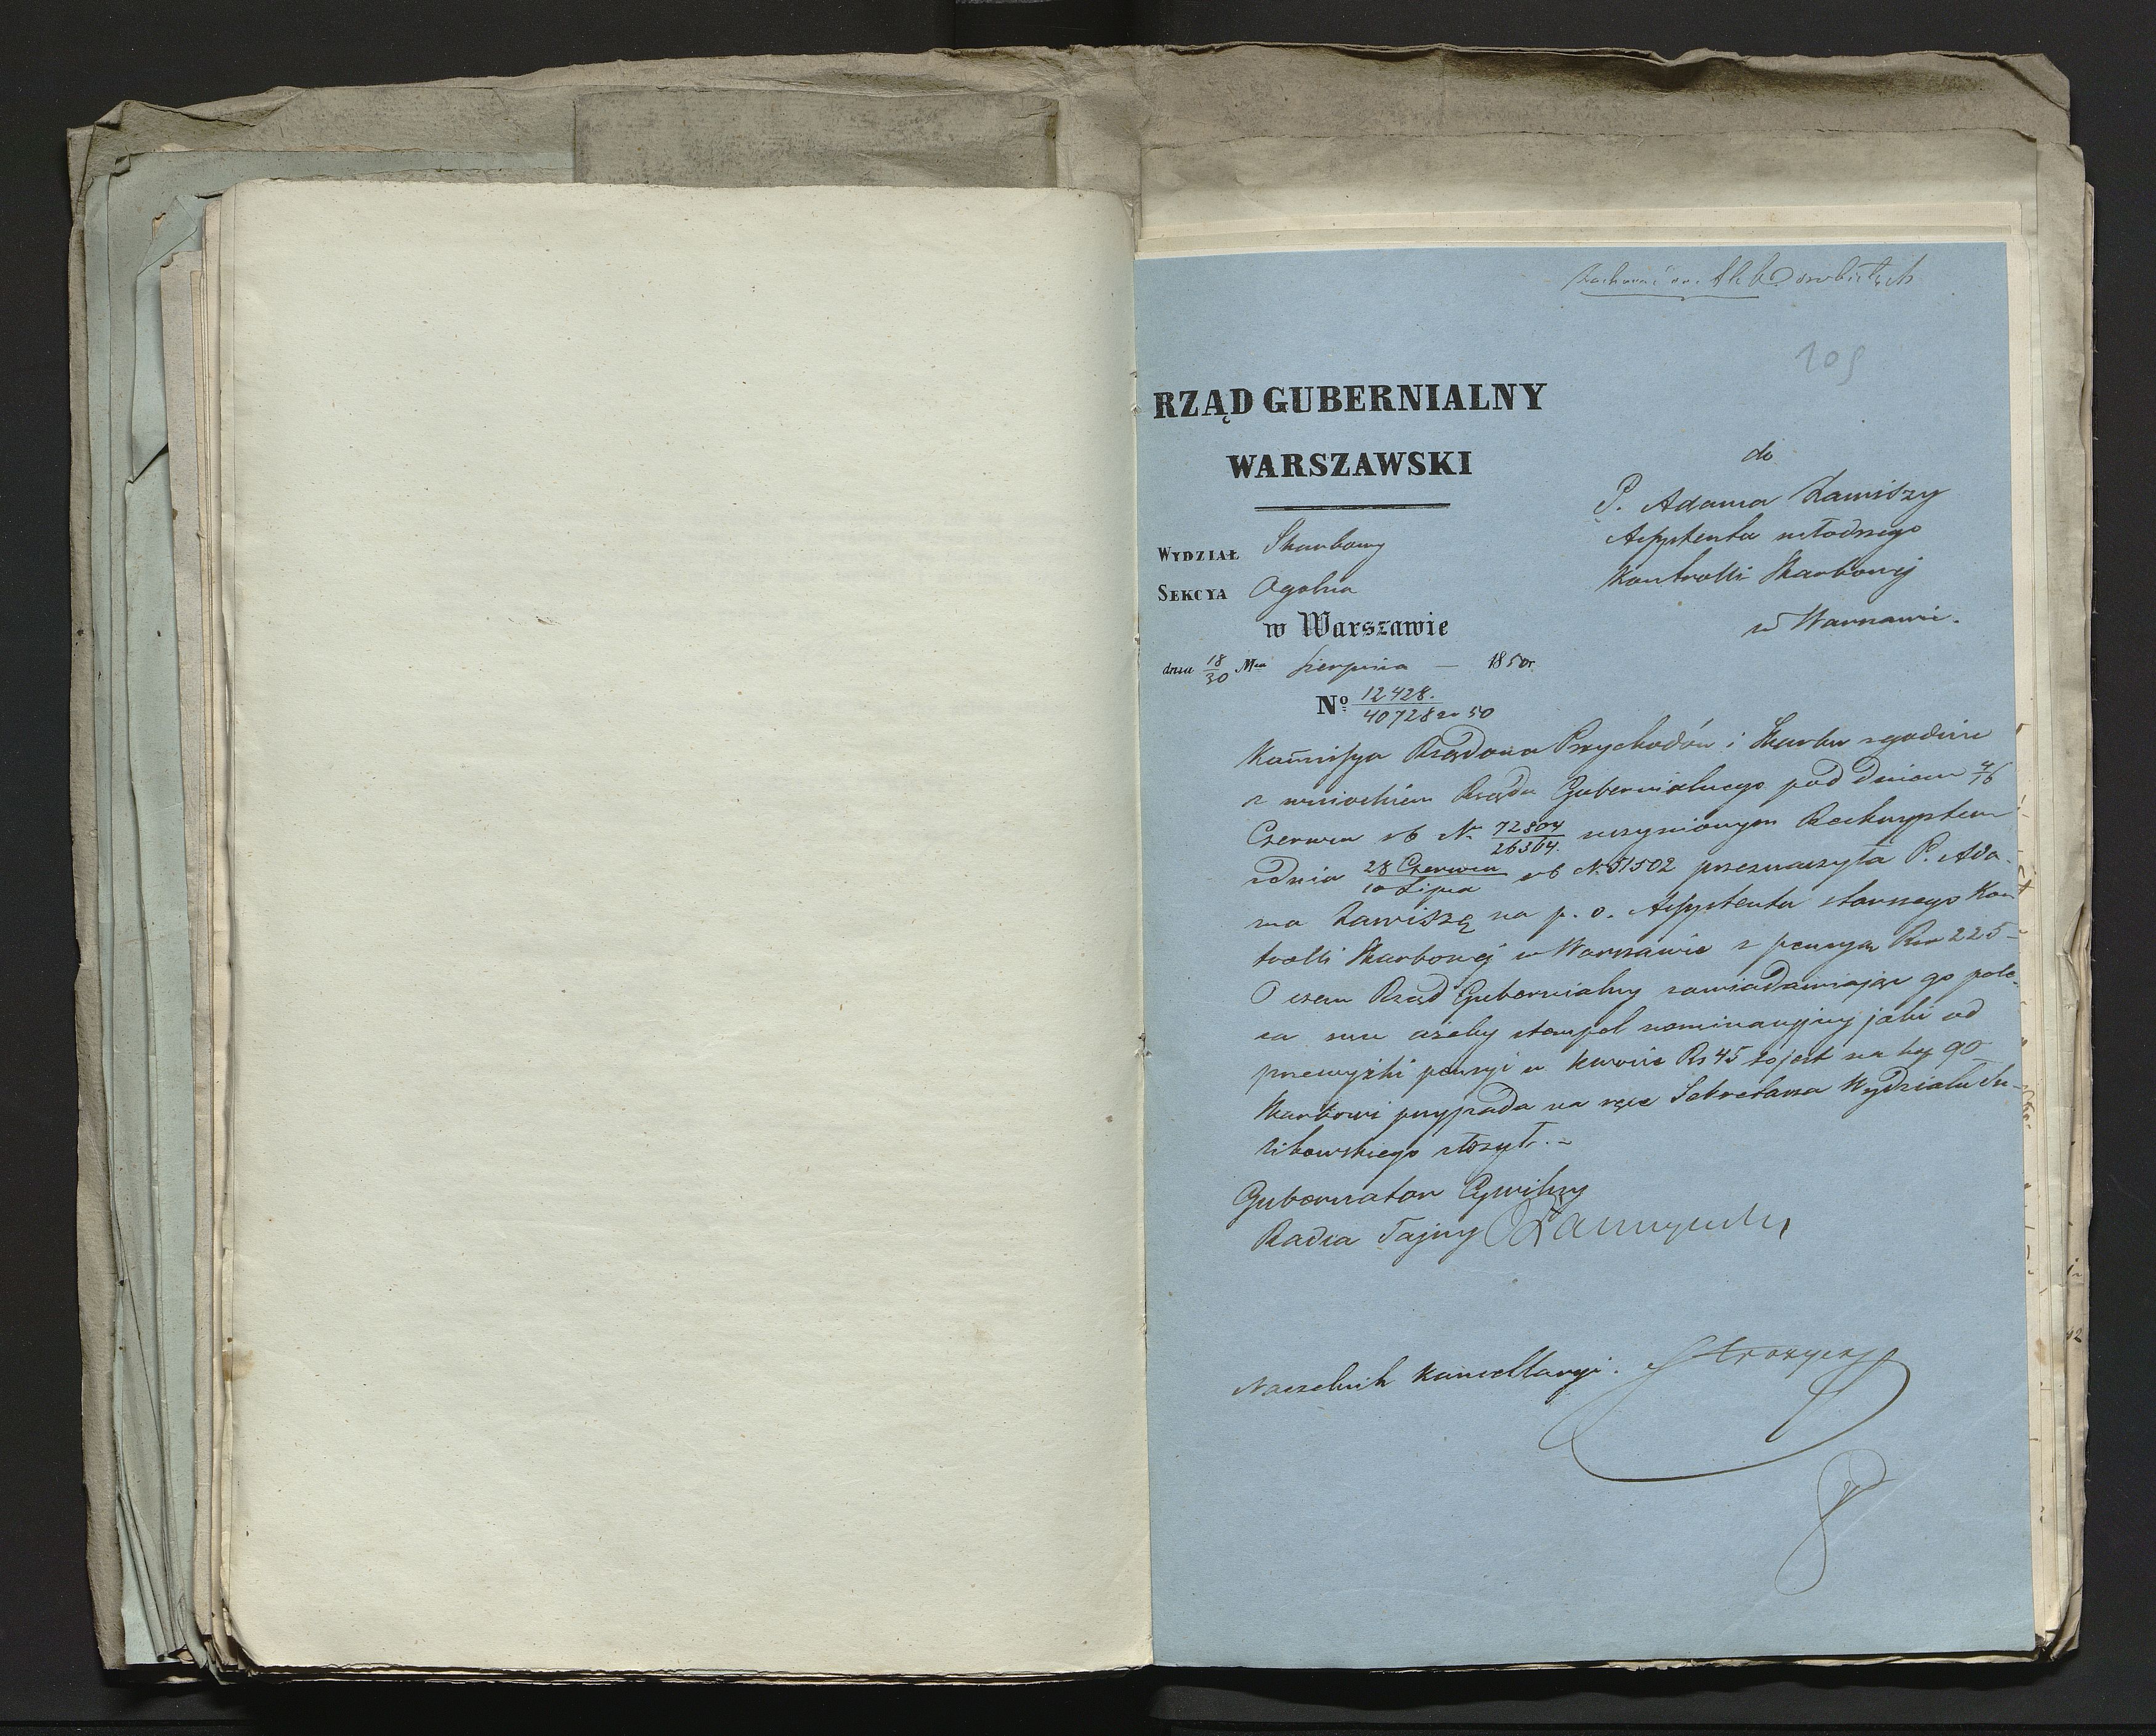 Zachować w Akt osobistych
109
RZĄD GUBERNIALNY
WARSZAWSKI
WYDZIAŁ Skarbowy
SEKCYA Ogolna
w Warszawie
dnia 18/30 Mca Sierpnia — 1850r.
No 12428./40728 ar 50
do
P. Adama Zawiszy
Assystenta młodszego
Kontrolli Skarbowej
w Warszawie.
Kommissya Rządowa Przychodów i Skarbu zgodnie
z wnioskiem Rządu Gubernialnego pod dniem 4/16
Czerwca rb N. 72804/26364. uczynionym Reskryptem
z dnia 28 Czerwca/10 Lipca rb N. 51502 przeznaczyła P. Ada-
ma Zawiszę na p. o. Assystenta starszego Kon
trolli Skarbowej w Warszawie z pensyą Rsr 225 -
O czem Rząd Gubernialny zawiadamiając go pole-
ca mu ażeby stempel nominacyjny jaki od
przewyżki pensyi w kwocie Rs 45 to jest na kop 90
Skarbowi przypada na ręce Sekretarza Wydziału
złożył. -
Gubernator Cywilny
Radca Tajny
Naczelnik Kancellaryi.